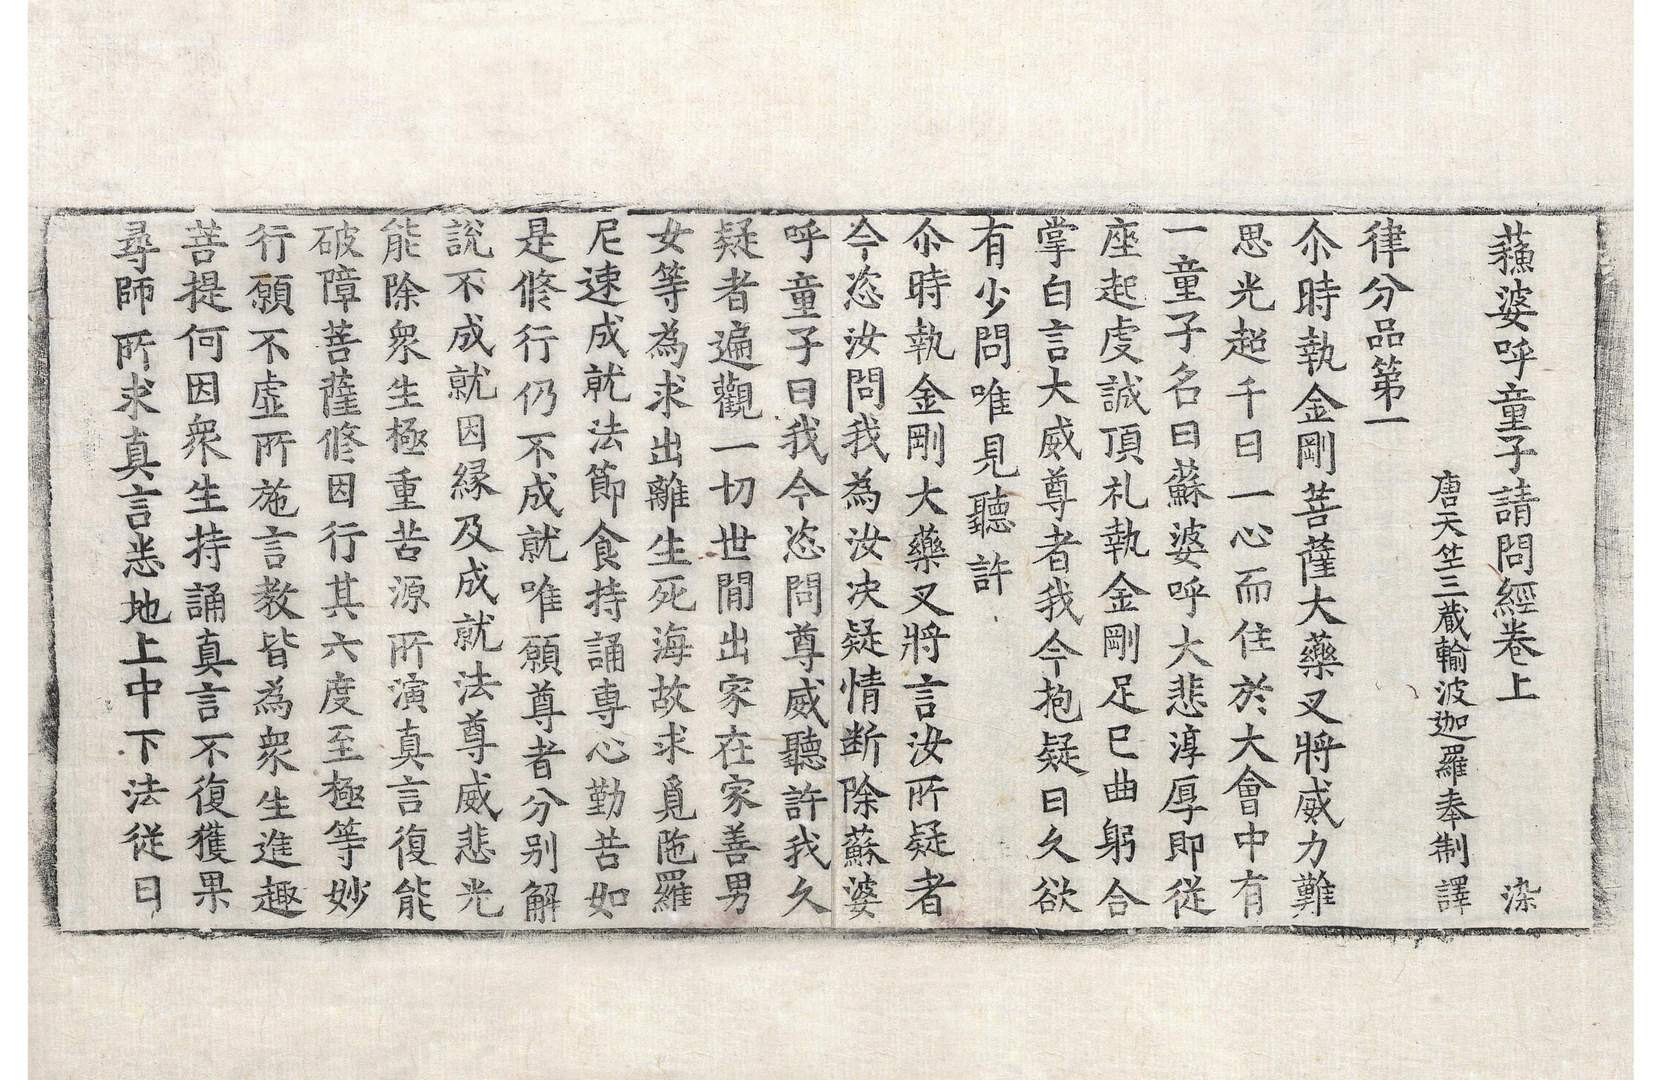 蘇婆呼童子請問經卷上　染
唐天竺三藏輸波迦羅奉制譯
律分品第一
尒時執金剛菩薩大藥叉將威力難
思光超千日一心而住於大會中有
一童子名曰蘇婆呼大悲淳厚即從
座起虔誠頂礼執金剛足已曲躬合
掌白言大威尊者我今抱疑日久欲
有少問唯見聽許
尒時執金剛大藥叉將言汝所疑者
今恣汝問我為汝決疑情断除蘇婆
呼童子曰我今恣問尊威聽許我久
疑者遍觀一切世閒出家在家善男
女等為求出離生死海故求覓陁羅
尼速成就法節食持誦專心勤苦如
是修行仍不成就唯願尊者分别解
說不成就因縁及成就法尊威悲光
能除衆生極重苦源所演真言復能
破障菩薩修因行其六度至極等妙
行願不虛所施言教皆為衆生進趣
菩提何因衆生持誦真言不復獲果
尋師所求真言悉地上中下法從日